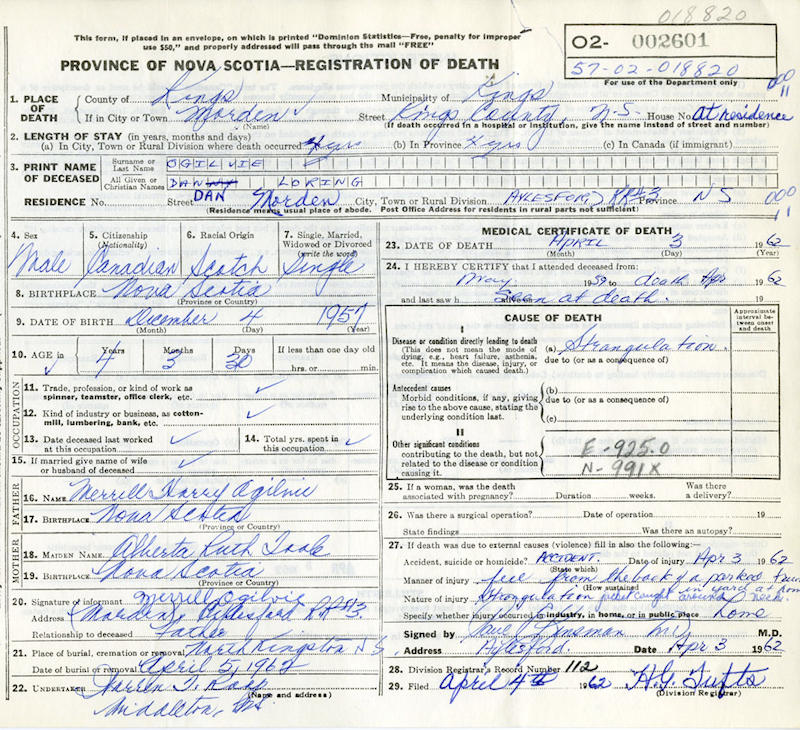 018820
This form, if placed in an envelope, on which is printed "Dominion Statistics—Free, penalty for improper
use $50," and properly addressed will pass through the mail "FREE"
O2- 002601
57-02-018820
For use of the Department only
PROVINCE OF NOVA SCOTIA—REGISTRATION OF DEATH
000
11
1. PLACE OF DEATH County of Kings Municipality of Kings
If in City or Town Morden (Name) Street Kings County, N-S- House No. At residence
(If death occurred in a hospital or institution, give the name instead of street and number)
2. LENGTH OF STAY (in years, months and days)
(a) In City, Town or Rural Division where death occurred 4 yrs (b) In Province 4 yrs (c) In Canada (if immigrant)
3. PRINT NAME OF DECEASED Surname or Last Name OGILVIE
All Given or Christian Names DANNY LORING
DAN
RESIDENCE No. Street Morden City, Town or Rural Division AYLESFORD RR#3 Province NS
(Residence means usual place of abode. Post Office Address for residents in rural parts not sufficient)
000
11
4. Sex 5. Citizenship (Nationality) 6. Racial Origin 7. Single, Married, Widowed or Divorced (write the word)
Male Canadian Scotch Single
8. BIRTHPLACE Nova Scotia
(Province or Country)
9. DATE OF BIRTH December 4 1957
(Month) (Day) (Year)
10. AGE in Years Months Days If less than one day old
4 3 30 hrs. or min.
OCCUPATION
11. Trade, profession, or kind of work as
spinner, teamster, office clerk, etc.
12. Kind of industry or business, as cotton-
mill, lumbering, bank, etc.
13. Date deceased last worked at this occupation 14. Total yrs. spent in this occupation
15. If married give name of wife
or husband of deceased
FATHER
16. NAME Merrill Harry Ogilvie
17. BIRTHPLACE Nova Scotia
(Province or Country)
MOTHER
18. MAIDEN NAME Alberta Ruth
19. BIRTHPLACE Nova Scotia
(Province or Country)
20. Signature of informant Merrill Ogilvie
Address Morden, Aylesford RR#3.
Relationship to deceased Father
21. Place of burial, cremation or removal North Kingston N S
Date of burial or removal April 5, 1962
22. UNDERTAKER Warren T.
(Name and address)
Middleton, NS
MEDICAL CERTIFICATE OF DEATH
23. DATE OF DEATH APRIL 3 1962
(Month) (Day) (Year)
24. I HEREBY CERTIFY that I attended deceased from:
May 1959 to death Apr 1962
and last saw h Seen at death.
CAUSE OF DEATH
Approximate interval between onset and death
I
Disease or condition directly leading to death
(This does not mean the mode of
dying, e.g., heart failure, asthenia,
etc. It means the disease, injury, or
complication which caused death.)
(a) Strangulation.
due to (or as a consequence of)
Antecedent causes
Morbid conditions, if any, giving
rise to the above cause, stating the
underlying condition last.
(b)
due to (or as a consequence of)
(c)
II
Other significant conditions
contributing to the death, but not
related to the disease or condition
causing it.
E-925.0
N-991X
25. If a woman, was the death
associated with pregnancy? Duration weeks. Was there a delivery?
26. Was there a surgical operation? Date of operation 19
State findings Was there an autopsy?
27. If death was due to external causes (violence) fill in also the following:—
Accident, suicide or homicide? ACCIDENT. Date of injury Apr 3 1962
(State which)
Manner of injury from the back of a parked
(How sustained) in yard at home
Nature of injury Strangulation caught around neck.
Specify whether injury occurred in industry, in home, or in public place home
Signed by M.D.
Address Aylesford. Date Apr 3 1962
28. Division Registrar's Record Number 112
29. Filed April 4th 1962 H.G. Tufts
(Division Registrar)